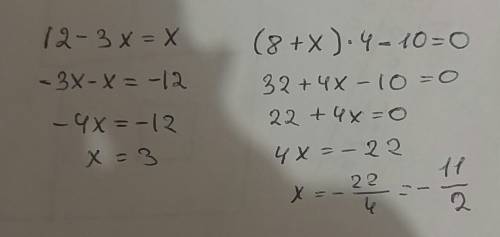 12 - 3x = x
-3x - x = -12
-4x = -12
x = 3
(8 + x) · 4 - 10 = 0
32 + 4x - 10 = 0
22 + 4x = 0
4x = -22
x = -22/4 = -11/2